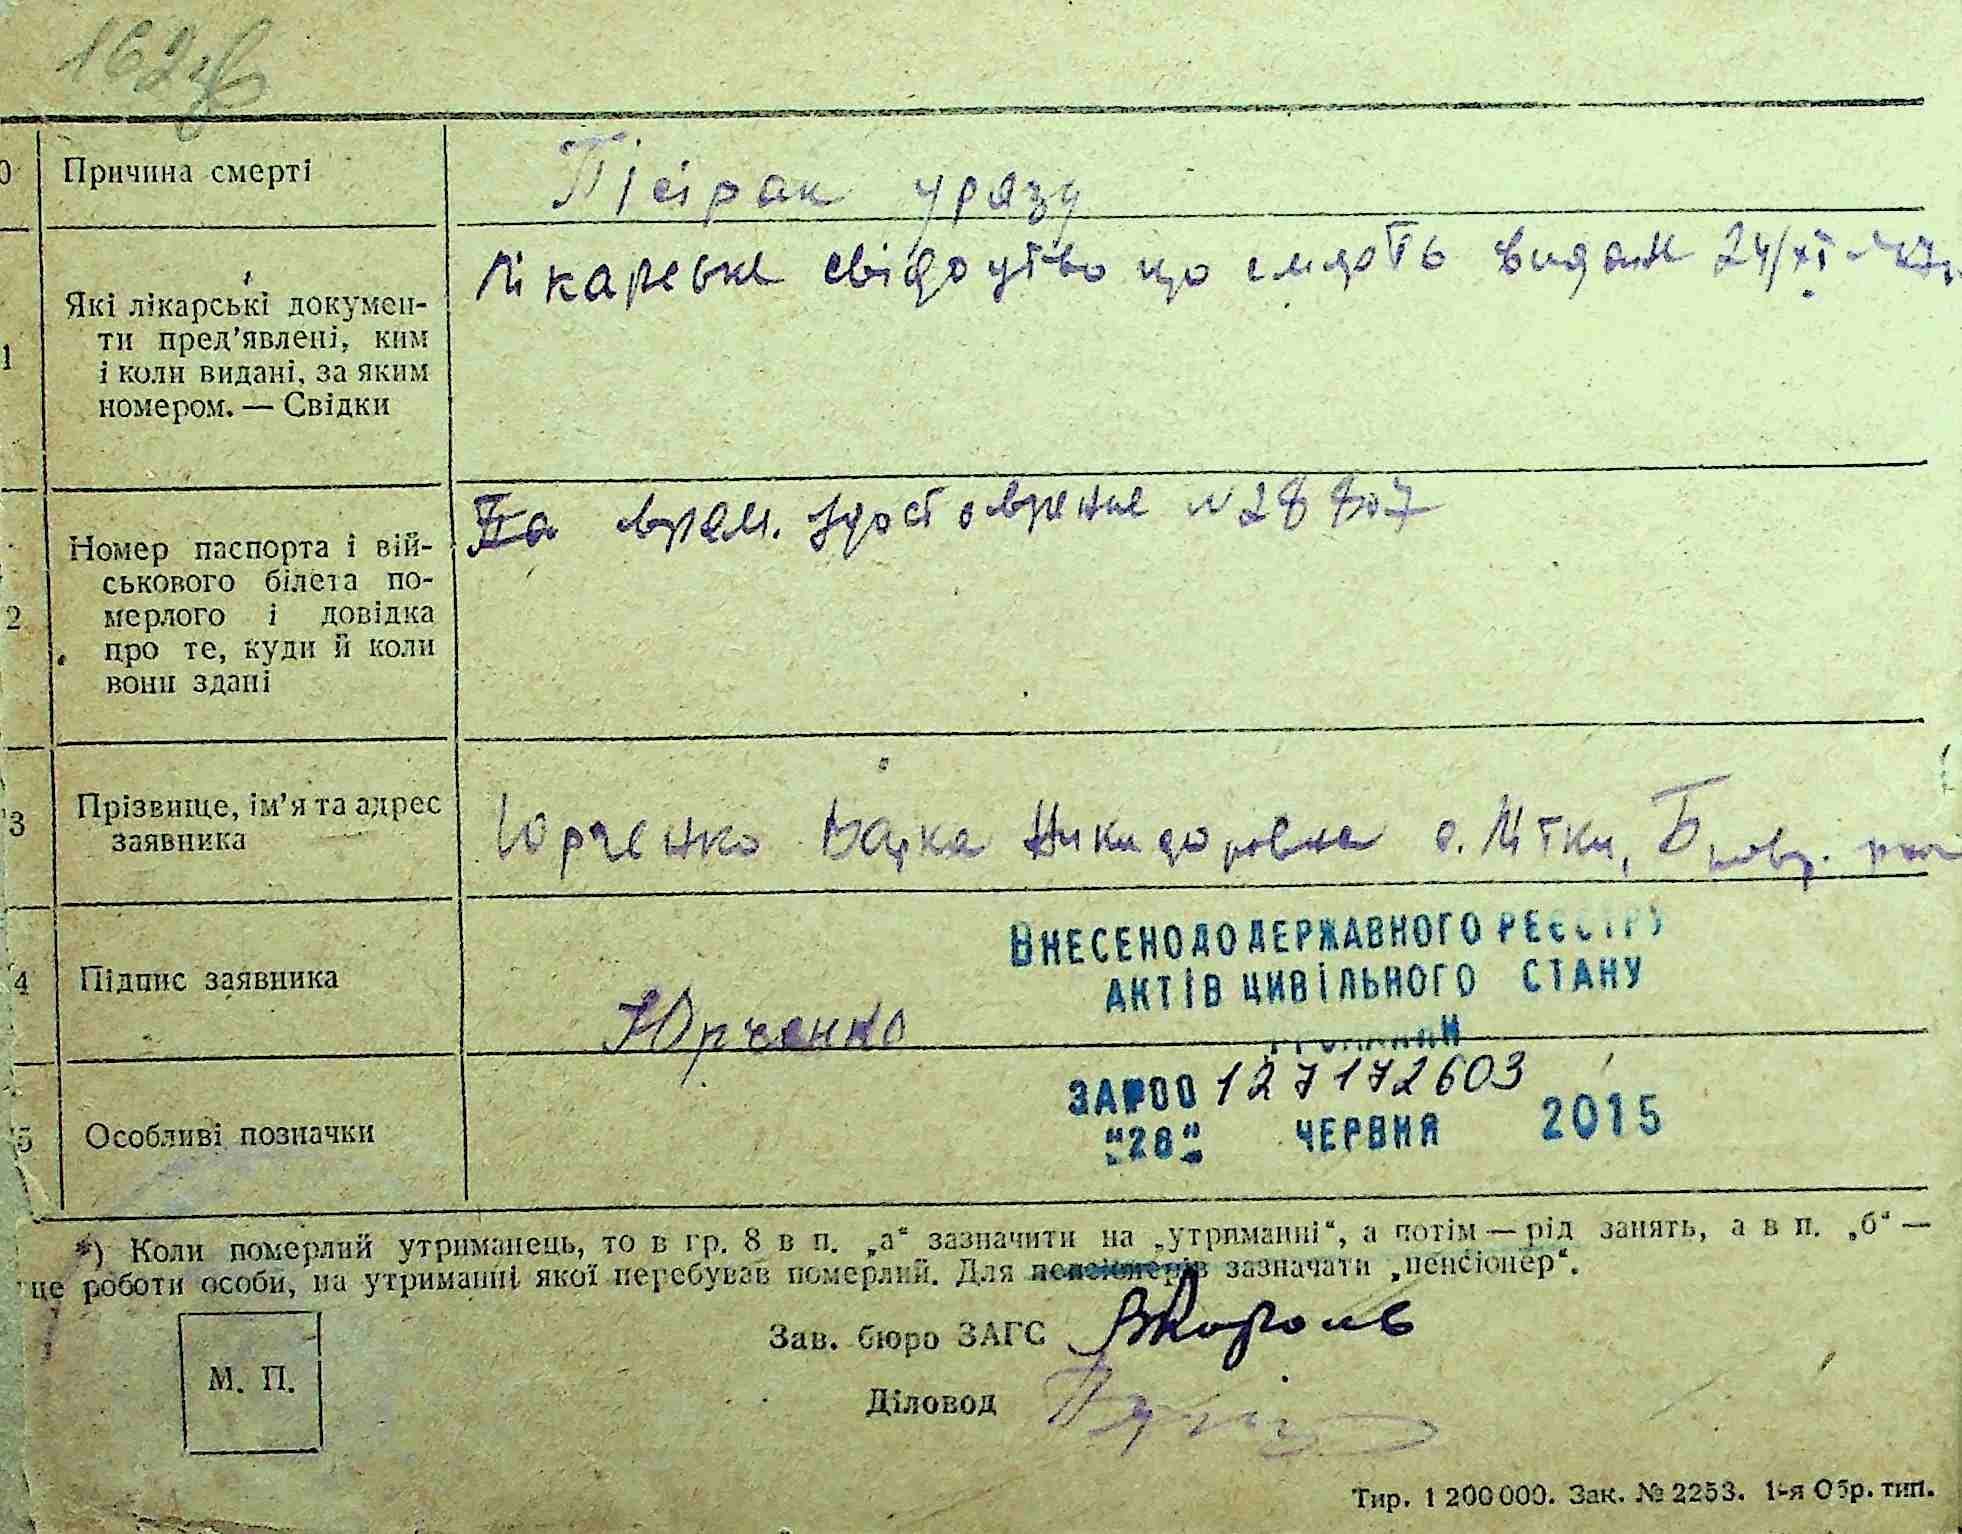 162
0 Причина смерті
1 Які лікарські докумен-
ти пред’явлені, ким
і коли видані, за яким
номером. — Свідки
Лікарське свідоцтво що смерть видане 24/XI-47
2 Номер паспорта і вій-
ськового білета по-
мерлого і довідка
про те, куди й коли
вони здані
врем. удостоврение N 28807
3 Прізвище, ім’я та адрес
заявника
Юрченко Никидоровна с. Літки,
4 Підпис заявника
Юрченко
ВНЕСЕНО ДО ДЕРЖАВНОГО РЕЄСТРУ
АКТІВ ЦИВІЛЬНОГО СТАНУ
ГРОМАДЯН
ЗА №00 127172603
"28" ЧЕРВНЯ 2015
5 Особливі позначки
*) Коли померлий утриманець, то в гр. 8 в п. „а“ зазначити на „утриманні“, а потім — рід занять, а в п. „б“ —
це роботи особи, на утриманні якої перебував померлий. Для пенсіонерів зазначати „пенсіонер“.
М. П.
Зав. бюро ЗАГС ВКороль
Діловод
Тир. 1 200 000. Зак. № 2253. 1-я Обр. тип.